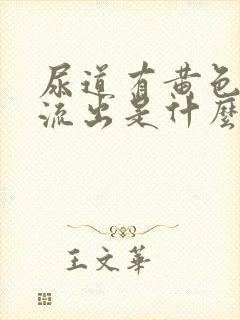 尿道有黄色
流出是什麼
王文華